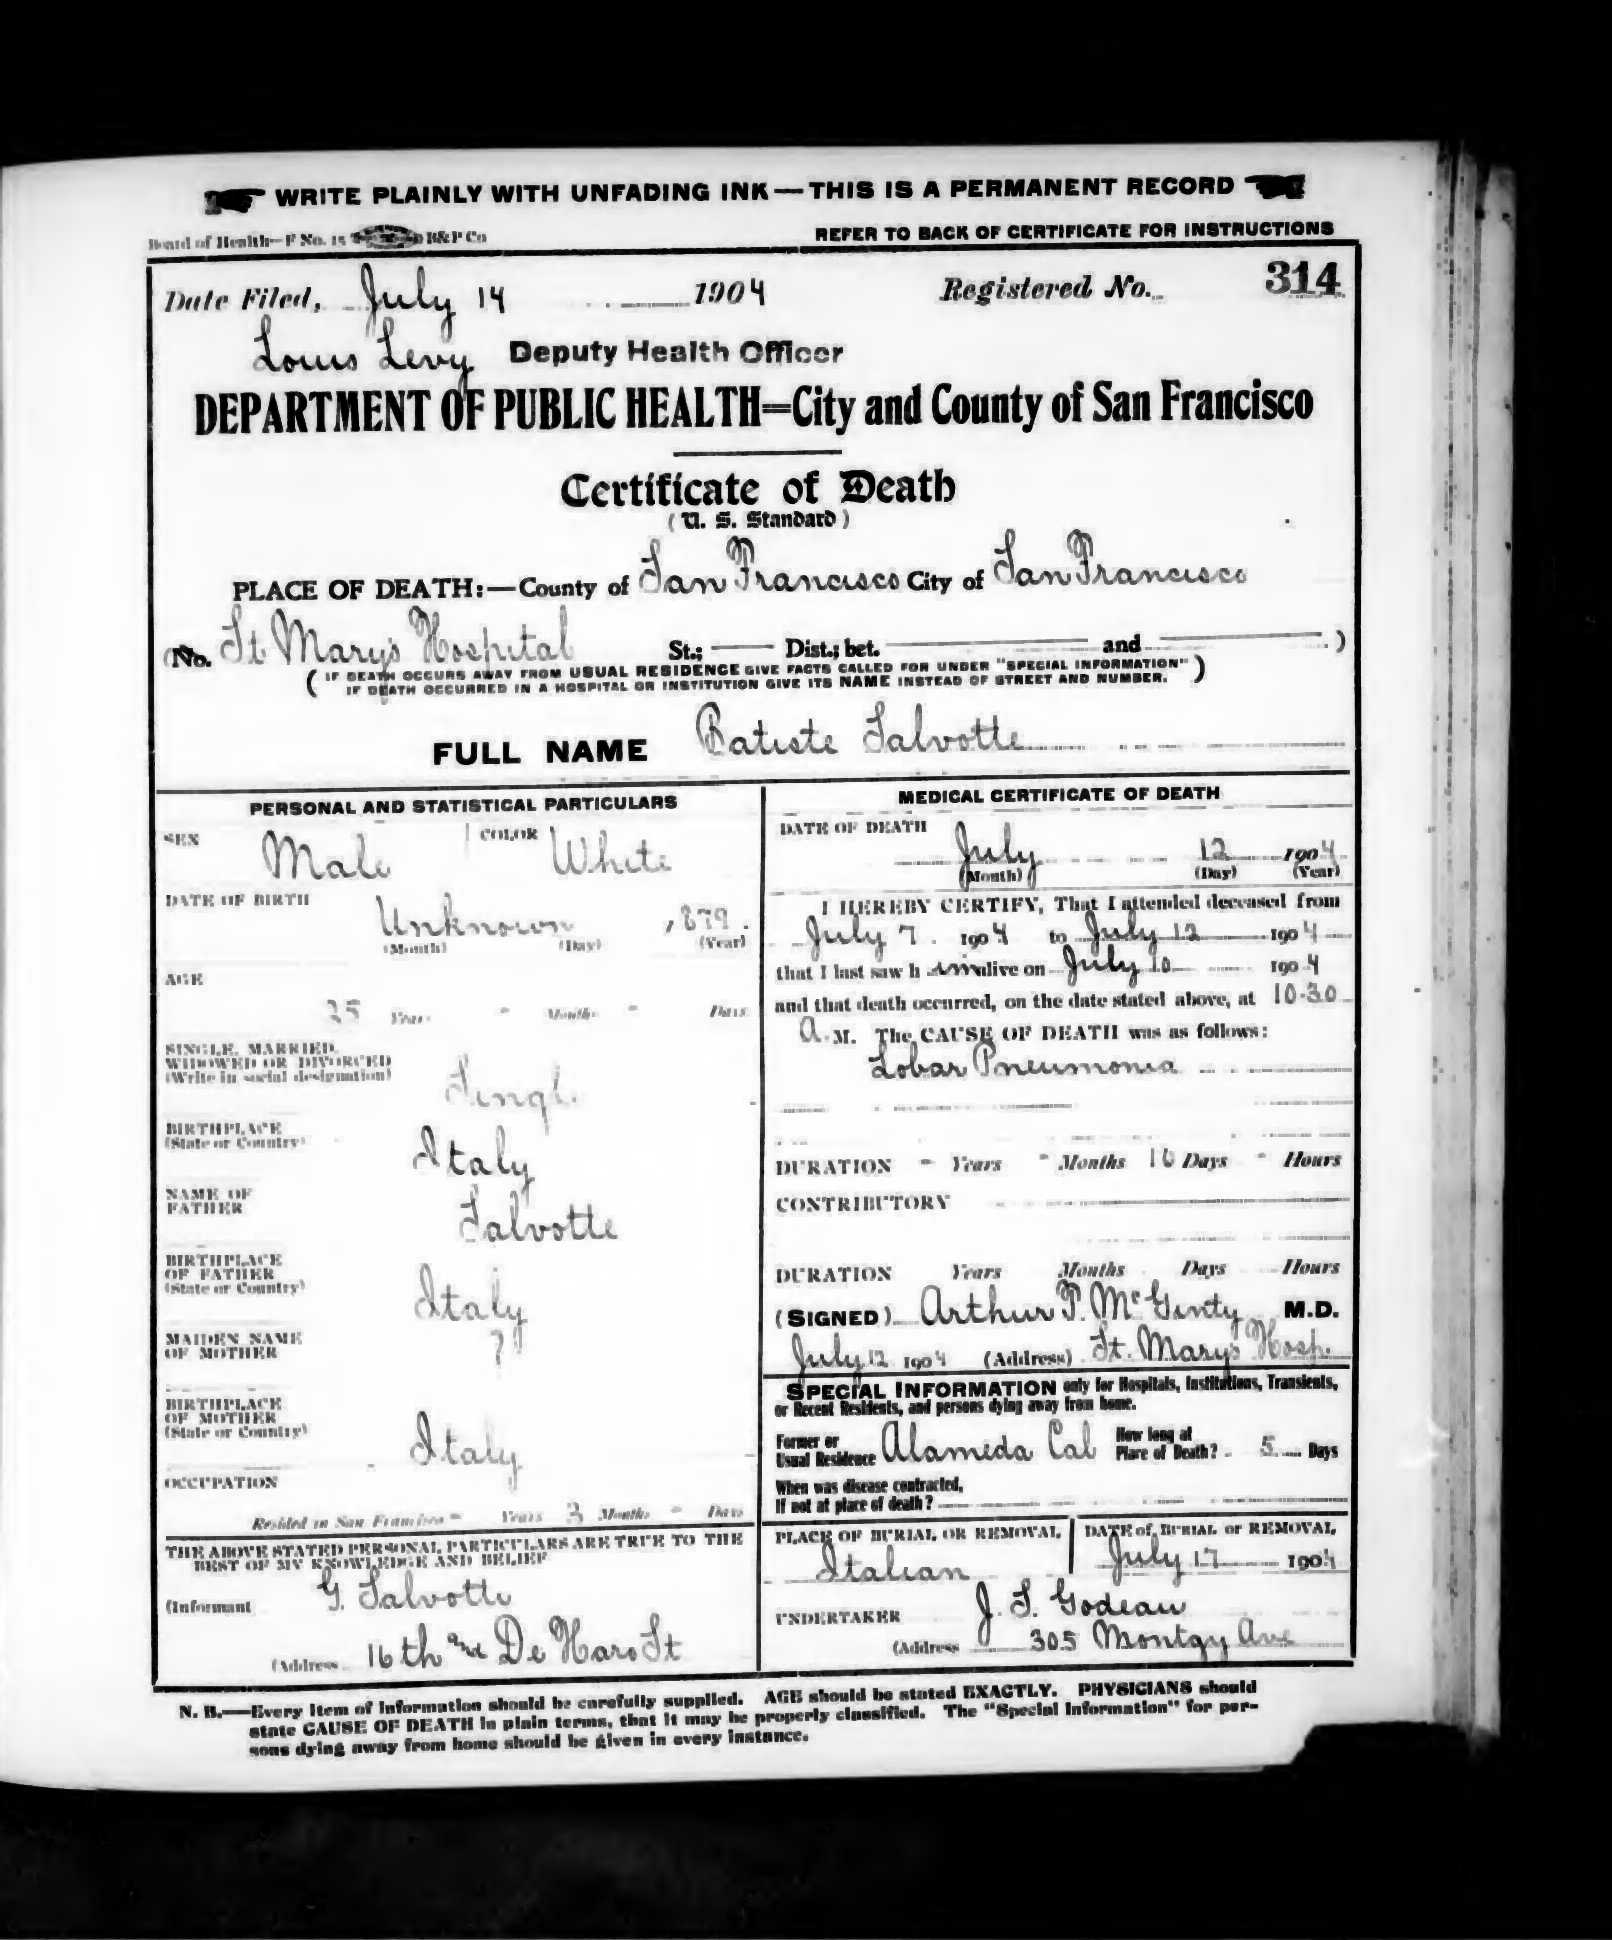 WRITE PLAINLY WITH UNFADING INK — THIS IS A PERMANENT RECORD
Board of Health—F No. 15 B&P Co
REFER TO BACK OF CERTIFICATE FOR INSTRUCTIONS
Date Filed, July 14 1904 Registered No. 314
Louis Levy Deputy Health Officer
DEPARTMENT OF PUBLIC HEALTH=City and County of San Francisco
Certificate of Death
( U. S. Standard )
PLACE OF DEATH:—County of San Francisco City of San Francisco
(No. St Mary's Hospital St.; Dist.; bet. and )
( IF DEATH OCCURS AWAY FROM USUAL RESIDENCE GIVE FACTS CALLED FOR UNDER "SPECIAL INFORMATION" )
IF DEATH OCCURRED IN A HOSPITAL OR INSTITUTION GIVE ITS NAME INSTEAD OF STREET AND NUMBER.
FULL NAME Batiste Salvotte
PERSONAL AND STATISTICAL PARTICULARS
SEX Male COLOR White
DATE OF BIRTH Unknown 1879
(Month) (Day) (Year)
AGE
25 Years - Months - Days
SINGLE, MARRIED,
WIDOWED OR DIVORCED
(Write in social designation) Single
BIRTHPLACE
(State or Country) Italy
NAME OF
FATHER Salvotte
BIRTHPLACE
OF FATHER
(State or Country) Italy
MAIDEN NAME
OF MOTHER ?
BIRTHPLACE
OF MOTHER
(State or Country) Italy
OCCUPATION
Resided in San Francisco - Years 3 Months - Days
THE ABOVE STATED PERSONAL PARTICULARS ARE TRUE TO THE
BEST OF MY KNOWLEDGE AND BELIEF
(Informant G. Salvotte
(Address 16th and De Haro St
MEDICAL CERTIFICATE OF DEATH
DATE OF DEATH
July 12 1904
(Month) (Day) (Year)
I HEREBY CERTIFY, That I attended deceased from
July 7 1904 to July 12 1904
that I last saw h im alive on July 10 1904
and that death occurred, on the date stated above, at 10-30
A. M. The CAUSE OF DEATH was as follows:
Lobar Pneumonia
DURATION - Years - Months 10 Days - Hours
CONTRIBUTORY
DURATION Years Months Days Hours
(SIGNED) Arthur P. McGinty M.D.
July 12 1904 (Address) St. Mary's Hosp.
SPECIAL INFORMATION only for Hospitals, Institutions, Transients,
or Recent Residents, and persons dying away from home.
Former or
Usual Residence Alameda Cal How long at
Place of Death? 5 Days
When was disease contracted,
If not at place of death?
PLACE OF BURIAL OR REMOVAL DATE of BURIAL or REMOVAL
Italian July 17 1904
UNDERTAKER J. S. Godeau
(Address 305 Montgy Ave
N. B.—Every item of information should be carefully supplied. AGE should be stated EXACTLY. PHYSICIANS should
state CAUSE OF DEATH in plain terms, that it may be properly classified. The "Special Information" for per-
sons dying away from home should be given in every instance.